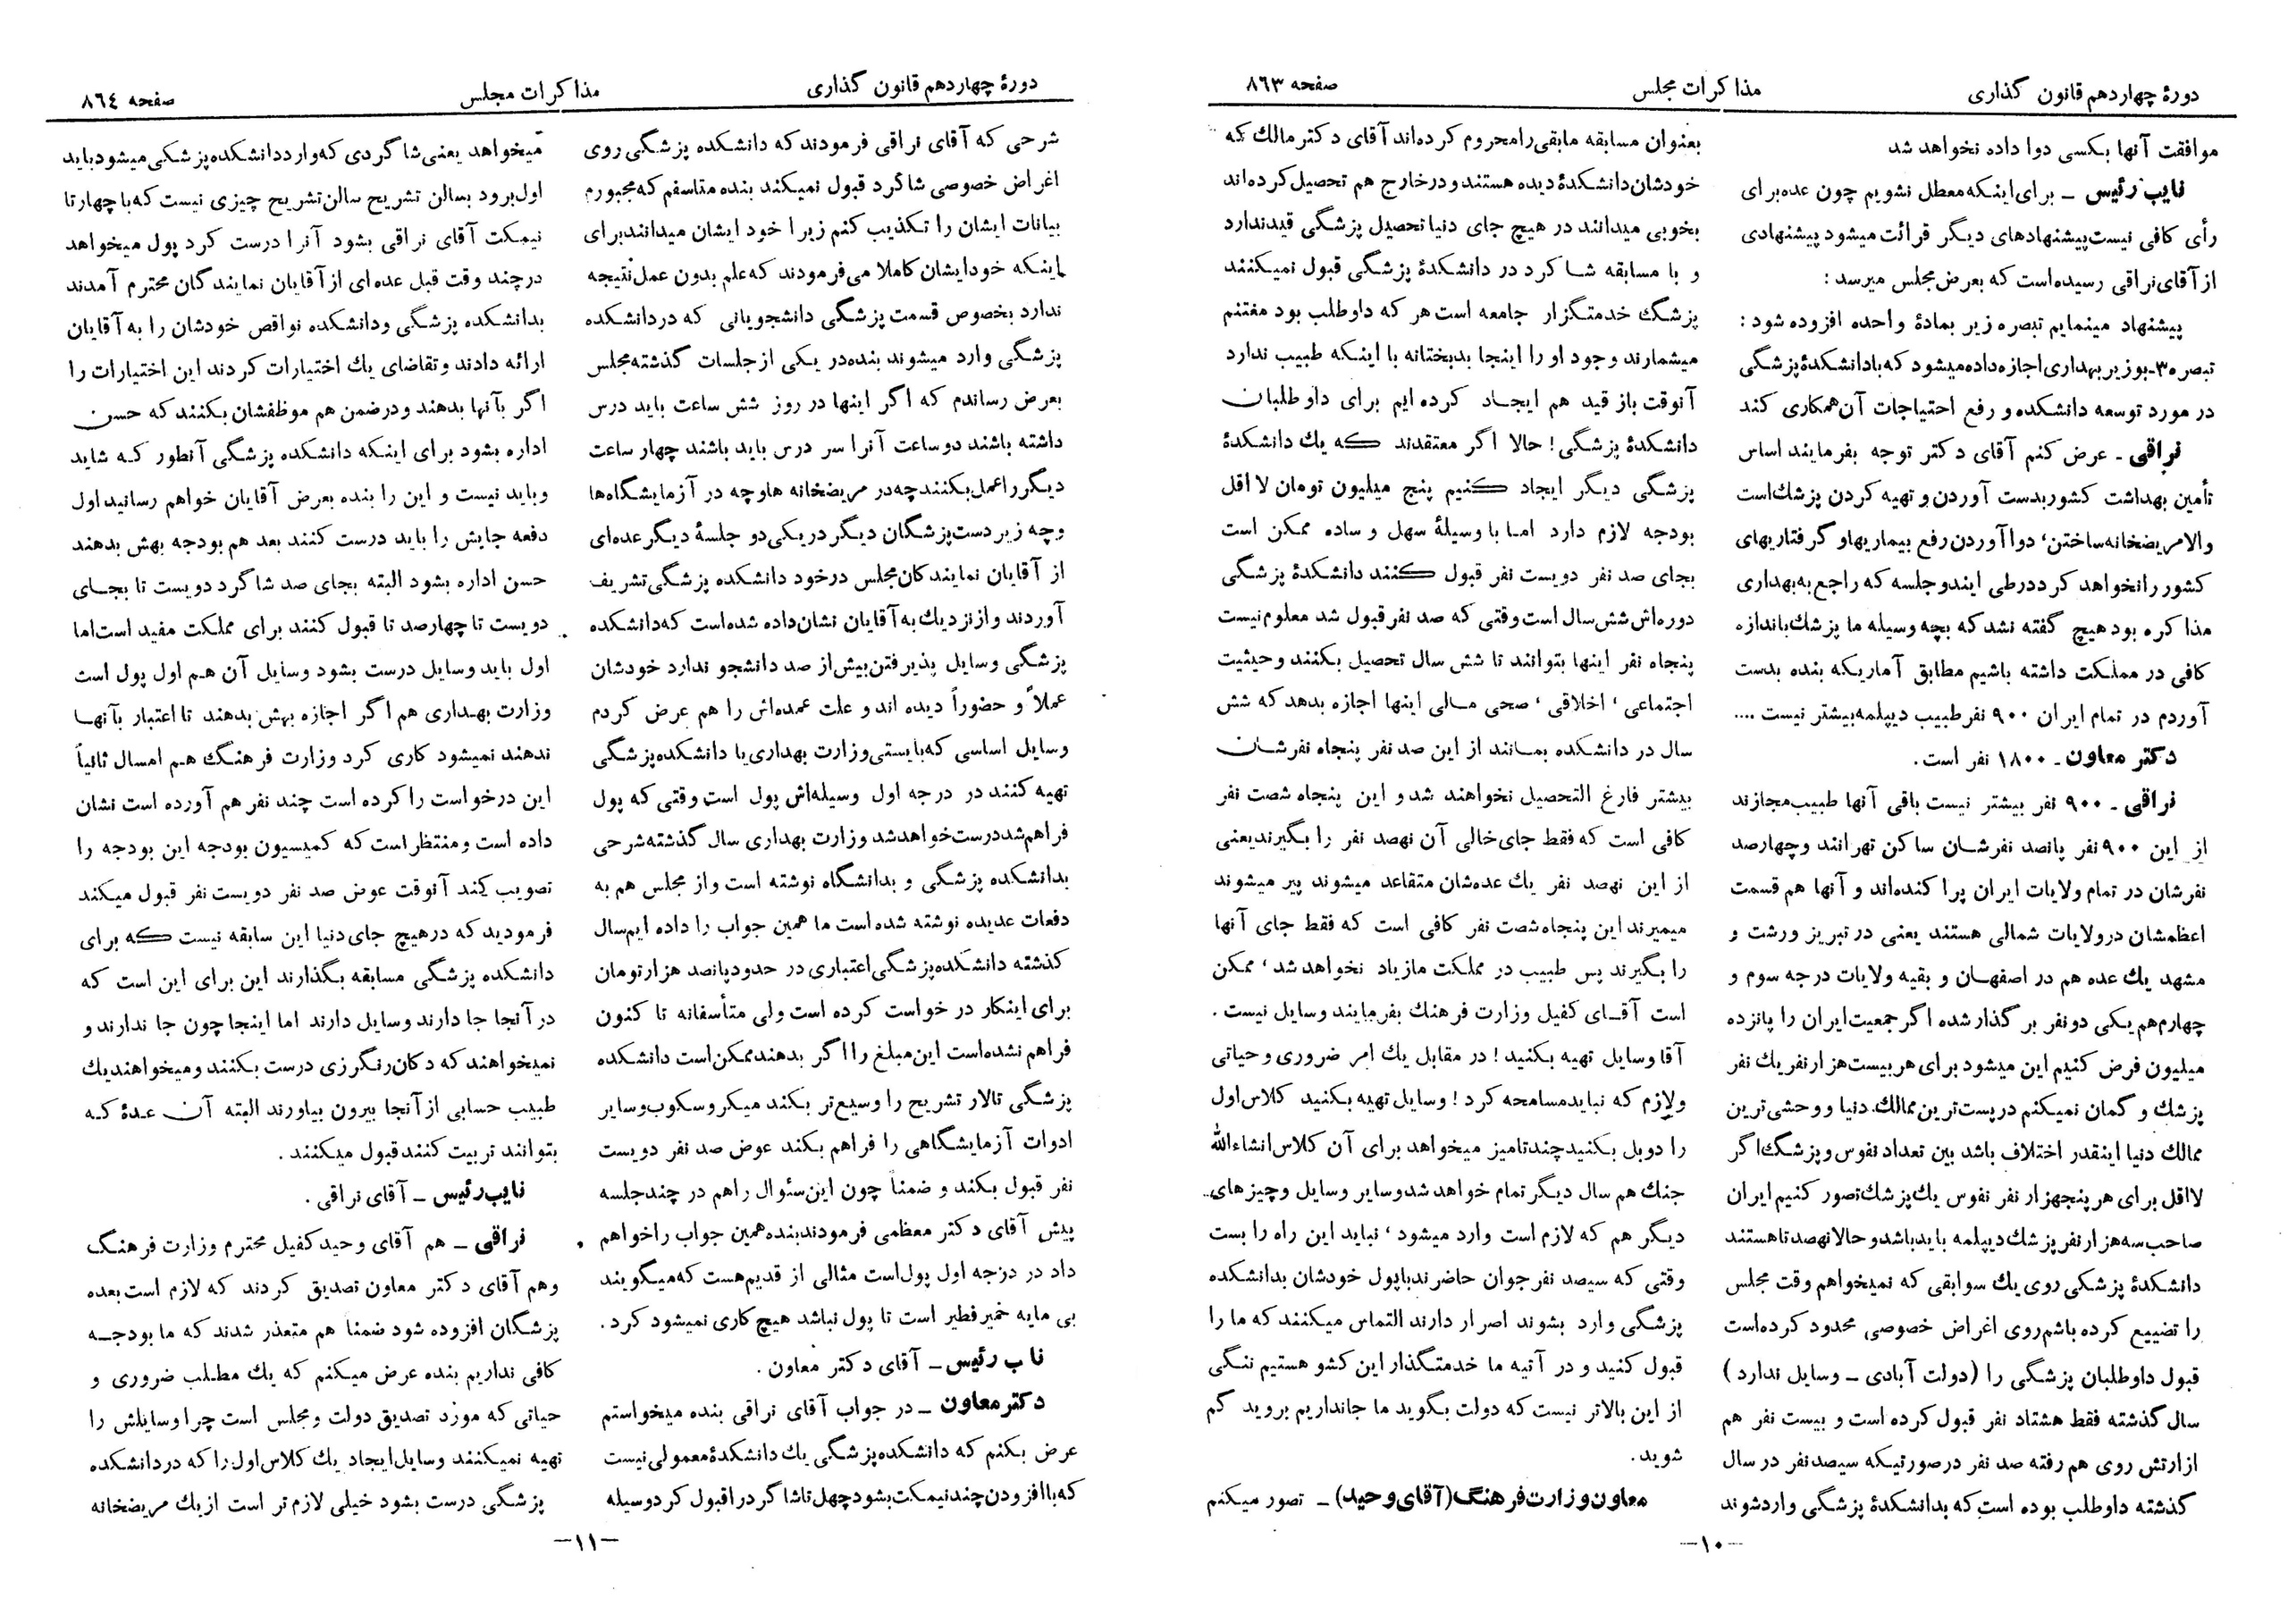 دورهٔ چهاردهم قانون گذاری
مذاکرات مجلس
صفحه ۸٦۳
موافقت آنها بکسی دوا داده نخواهد شد
نایب رئیس ـ برای اینکه معطل نشویم چون عده برای
رأی کافی نیست پیشنهادهای دیگر قرائت میشود پیشنهادی
از آقای نراقی رسیده است که بعرض مجلس میرسد :
پیشنهاد مینمایم تبصره زیر بمادهٔ واحده افزوده شود :
تبصره ۳ـ بوزیر بهداری اجازه داده میشود که با دانشکدهٔ پزشگی
در مورد توسعه دانشکده و رفع احتیاجات آن همکاری کند
نراقی ـ عرض کنم آقای دکتر توجه بفرمایند اساس
تأمین بهداشت کشور بدست آوردن و تهیه کردن پزشك است
والا مریضخانه ساختن، دوا آوردن رفع بیماریها و گرفتاریهای
کشور را نخواهد کرد در طی ایندو جلسه که راجع به بهداری
مذاکره بود هیچ گفته نشد که بچه وسیله ما پزشك باندازه
کافی در مملکت داشته باشیم مطابق آماریکه بنده بدست
آوردم در تمام ایران ۹۰۰ نفر طبیب دیپلمه بیشتر نیست ....
دکتر معاون ـ ۱۸۰۰ نفر است .
نراقی ـ ۹۰۰ نفر بیشتر نیست باقی آنها طبیب مجازند
از این ۹۰۰ نفر پانصد نفرشان ساکن تهرانند وچهارصد
نفرشان در تمام ولایات ایران پراکنده‌اند و آنها هم قسمت
اعظمشان در ولایات شمالی هستند یعنی در تبریز ورشت و
مشهد یك عده هم در اصفهان و بقیه ولایات درجه سوم و
چهارم هم یکی دو نفر بر گذار شده اگر جمعیت ایران را پانزده
میلیون فرض کنیم این میشود برای هر بیست هزار نفر یك نفر
پزشك و گمان نمیکنم در پست‌ترین ممالك دنیا و وحشی‌ترین
ممالك دنیا اینقدر اختلاف باشد بین تعداد نفوس و پزشگ اگر
لااقل برای هر پنجهزار نفر نفوس یك پزشك تصور کنیم ایران
صاحب سه هزار نفر پزشك دیپلمه باید باشد و حالا نهصد تا هستند
دانشکدهٔ پزشکی روی یك سوابقی که نمیخواهم وقت مجلس
را تضییع کرده باشم روی اغراض خصوصی محدود کرده است
قبول داوطلبان پزشگی را (دولت آبادی ـ وسایل ندارد )
سال گذشته فقط هشتاد نفر قبول کرده است و بیست نفر هم
از ارتش روی هم رفته صد نفر درصورتیکه سیصد نفر در سال
گذشته داوطلب بوده است که بدانشکدهٔ پزشگی وارد شوند
بعنوان مسابقه مابقی را محروم کرده‌اند آقای دکتر مالك که
خودشان دانشکدهٔ دیده هستند و در خارج هم تحصیل کرده‌اند
بخوبی میدانند در هیچ جای دنیا تحصیل پزشگی قید ندارد
و با مسابقه شاکرد در دانشکدهٔ پزشگی قبول نمیکنند
پزشگ خدمتگزار جامعه است هر که داوطلب بود مغتنم
میشمارند وجود او را اینجا بدبختانه با اینکه طبیب ندارد
آنوقت باز قید هم ایجاد کرده ایم برای داوطلبان
دانشکدهٔ پزشگی ! حالا اگر معتقدند که یك دانشکدهٔ
پزشگی دیگر ایجاد کنیم پنج میلیون تومان لااقل
بودجه لازم دارد اما با وسیلهٔ سهل و ساده ممکن است
بجای صد نفر دویست نفر قبول کنند دانشکدهٔ پزشگی
دوره‌اش شش سال است وقتی که صد نفر قبول شد معلوم نیست
پنجاه نفر اینها بتوانند تا شش سال تحصیل بکنند و حیثیت
اجتماعی ، اخلاقی ، صحی مالی اینها اجازه بدهد که شش
سال در دانشکده بمانند از این صد نفر پنجاه نفرشان
بیشتر فارغ التحصیل نخواهند شد و این پنجاه شصت نفر
کافی است که فقط جای خالی آن نهصد نفر را بگیرند یعنی
از این نهصد نفر یك عده‌شان متقاعد میشوند پیر میشوند
میمیرند این پنجاه شصت نفر کافی است که فقط جای آنها
را بگیرند پس طبیب در مملکت ما زیاد نخواهد شد ، ممکن
است آقای کفیل وزارت فرهنك بفرمایند وسایل نیست .
آقا وسایل تهیه بکنید ! در مقابل یك امر ضروری و حیاتی
ولازم که نباید مسامحه کرد ! وسایل تهیه بکنید کلاس اول
را دوبل بکنید چند تا میز میخواهد برای آن کلاس انشاءالله
جنك هم سال دیگر تمام خواهد شد و سایر وسایل وچیزهای
دیگر هم که لازم است وارد میشود ، نباید این راه را بست
وقتی که سیصد نفر جوان حاضرند با پول خودشان بدانشکده
پزشگی وارد بشوند اصرار دارند التماس میکنند که ما را
قبول کنید و در آتیه ما خدمتگذار این کشو هستیم ننگی
از این بالاتر نیست که دولت بگوید ما جا نداریم بروید گم
شوید .
معاون وزارت فرهنگ (آقای وحید) ـ تصور میکنم
ـ۱۰ـ
دورهٔ چهاردهم قانون گذاری
مذاکرات مجلس
صفحه ۸٦٤
شرحی که آقای نراقی فرمودند که دانشکده پزشگی روی
اغراض خصوصی شاگرد قبول نمیکند بنده متاسفم که مجبورم
بیانات ایشان را تکذیب کنم زیرا خود ایشان میدانند برای
اینکه خود ایشان کاملا می‌فرمودند که علم بدون عمل نتیجه
ندارد بخصوص قسمت پزشگی دانشجویانی که در دانشکده
پزشگی وارد میشوند بنده در یکی از جلسات گذشته مجلس
بعرض رساندم که اگر اینها در روز شش ساعت باید درس
داشته باشند دو ساعت آنرا سر درس باید باشند چهار ساعت
دیگر را عمل بکنند چه در مریضخانه ها وچه در آزمایشگاه‌ها
وچه زیر دست پزشگان دیگر در یکی دو جلسهٔ دیگر عده‌ای
از آقایان نمایندکان مجلس در خود دانشکده پزشگی تشریف
آوردند و از نزدیك به آقایان نشان داده شده است که دانشکده
پزشگی وسایل پذیرفتن بیش از صد دانشجو ندارد خودشان
عملاً و حضوراً دیده اند و علت عمده‌اش را هم عرض کردم
وسایل اساسی که بایستی وزارت بهداری یا دانشکده پزشگی
تهیه کنند در درجه اول وسیله‌اش پول است وقتی که پول
فراهم شد درست خواهد شد وزارت بهداری سال گذشته شرحی
بدانشکده پزشگی و بدانشگاه نوشته است و از مجلس هم به
دفعات عدیده نوشته شده است ما همین جواب را داده ایم سال
گذشته دانشکده پزشگی اعتباری در حدود پانصد هزار تومان
برای اینکار در خواست کرده است ولی متأسفانه تا کنون
فراهم نشده است این مبلغ را اگر بدهند ممکن است دانشکده
پزشگی تالار تشریح را وسیع‌تر بکند میکروسکوب و سایر
ادوات آزمایشگاهی را فراهم بکند عوض صد نفر دویست
نفر قبول بکند و ضمناً چون این سئوال را هم در چند جلسه
پیش آقای دکتر معظمی فرمودند بنده همین جواب را خواهم
داد در درجه اول پول است مثالی از قدیم هست که میگویند
بی مایه خمیر فطیر است تا پول نباشد هیچ کاری نمیشود کرد .
نا ب رئیس ـ آقای دکتر معاون .
دکتر معاون ـ در جواب آقای نراقی بنده میخواستم
عرض بکنم که دانشکده پزشگی یك دانشکدهٔ معمولی نیست
که با افزودن چند نیمکت بشود چهل تا شاگرد را قبول کرد وسیله
میخواهد یعنی شاگردی که وارد دانشکده پزشکی میشود باید
اول برود بسالن تشریح سالن تشریح چیزی نیست که با چهار تا
نیمکت آقای نراقی بشود آنرا درست کرد پول میخواهد
در چند وقت قبل عده ای از آقایان نمایندگان محترم آمدند
بدانشکده پزشگی ودانشکده نواقص خودشان را به آقایان
ارائه دادند و تقاضای یك اختیارات کردند این اختیارات را
اگر بآنها بدهند و در ضمن هم موظفشان بکنند که حسن
اداره بشود برای اینکه دانشکده پزشگی آنطور که شاید
وباید نیست و این را بنده بعرض آقایان خواهم رسانید اول
دفعه جایش را باید درست کنند بعد هم بودجه بهش بدهند
حسن اداره بشود البته بجای صد شاگرد دویست تا بجای
دویست تا چهارصد تا قبول کنند برای مملکت مفید است اما
اول باید وسایل درست بشود وسایل آن هم اول پول است
وزارت بهداری هم اگر اجازه بهش بدهند تا اعتبار بآنها
ندهند نمیشود کاری کرد وزارت فرهنگ هم امسال ثانیاً
این درخواست را کرده است چند نفر هم آورده است نشان
داده است و منتظر است که کمیسیون بودجه این بودجه را
تصویب کند آنوقت عوض صد نفر دویست نفر قبول میکند
فرمودید که در هیچ جای دنیا این سابقه نیست که برای
دانشکده پزشگی مسابقه بگذارند این برای این است که
در آنجا جا دارند وسایل دارند اما اینجا چون جا ندارند و
نمیخواهند که دکان رنگرزی درست بکنند و میخواهند یك
طبیب حسابی از آنجا بیرون بیاورند البته آن عدهٔ که
بتوانند تربیت کنند قبول میکنند .
نایب رئیس ـ آقای نراقی .
نراقی ـ هم آقای وحید کفیل محترم وزارت فرهنگ
وهم آقای دکتر معاون تصدیق کردند که لازم است بعده
پزشگان افزوده شود ضمناً هم متعذر شدند که ما بودجه
کافی نداریم بنده عرض میکنم که یك مطلب ضروری و
حیاتی که مورد تصدیق دولت ومجلس است چرا وسایلش را
تهیه نمیکنند وسایل ایجاد یك کلاس اول را که در دانشکده
پزشگی درست بشود خیلی لازم تر است از یك مریضخانه
ـ۱۱ـ